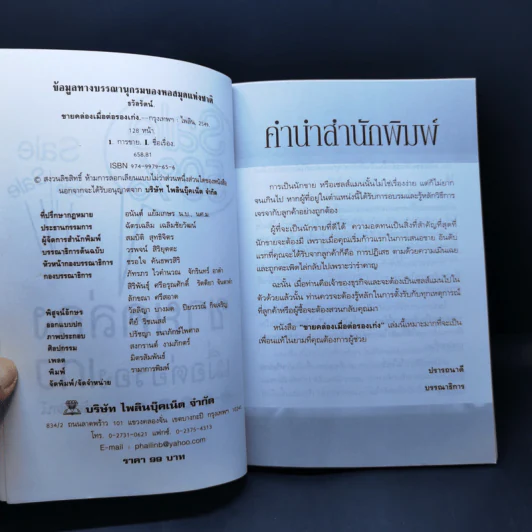 ข้อมูลทางบรรณานุกรมของหอสมุดแห่งชาติ
ธวัธรัตน์
ขายคล่องเมื่อต่อรองเก่ง.--กรุงเทพฯ : ไพลิน,
128 หน้า
1. การขาย. I. ชื่อเรื่อง
658.81
ISBN 974-9979-65-6
© สงวนลิขสิทธิ์ ห้ามการลอกเลียนแบบไม่ว่าส่วนหนึ่งส่วนใดของหนังสือ
นอกจากจะได้รับอนุญาตจาก บริษัท ไพลินบุ๊คเน็ต จำกัด
ที่ปรึกษากฎหมาย อนันต์ แย้มเกษร น.บ., นศ.ม.
ประธานกรรมการ ฉัตรเฉลิม เฉลิมชัยวัฒน์
ผู้จัดการสำนักพิมพ์ สมบัติ สุทธิจิตร
บรรณาธิการต้นฉบับ วรพจน์ สิริยุคตะ
หัวหน้ากองบรรณาธิการ ชรอใจ
กองบรรณาธิการ ภัทรภร ไวคำนวณ จักรินทร์
ลักขณา ศรีสอาด
พิสูจน์อักษร
ออกแบบปก
ภาพประกอบ ปริชญา ชนาภักษ์ไพศาล
ศิลปกรรม สงกรานต์ งามภักตร์
เพลต มิตรสัมพันธ์
พิมพ์ รามาการพิมพ์
จัดพิมพ์/จัดจำหน่าย
บริษัท ไพลินบุ๊คเน็ต จำกัด
โทร. 0-2731-0621 แฟกซ์. 0-2375-4313
E-mail : phailinb@yahoo.com
ราคา 99 บาท
คำนำสำนักพิมพ์
การเป็นนักขาย หรือเซลส์แมนนั้นไม่ใช่เรื่องง่าย แต่ก็ไม่ยาก
จนเกินไป หากผู้ที่อยู่ในตำแหน่งนี้ได้รับการอบรมและรู้หลักวิธีการ
เจรจากับลูกค้าอย่างถูกต้อง
ผู้ที่จะเป็นนักขายที่ดีได้ ความอดทนเป็นสิ่งที่สำคัญที่สุดที่
นักขายจะต้องมี เพราะเมื่อคุณเริ่มก้าวแรกในการเสนอขาย อันดับ
แรกที่คุณจะได้รับจากลูกค้าก็คือ การปฏิเสธ ตามด้วยความเมินเฉย
และถูกตะเพิดไล่กลับไปเพราะว่ารำคาญ
ฉะนั้น เมื่อท่านคือเจ้าของธุรกิจและจะต้องเป็นเซลส์แมนไปใน
ตัวด้วยแล้วนั้น ท่านควรจะต้องรู้หลักในการตั้งรับกับทุกเหตุการณ์
ที่ลูกค้าหรือผู้ซื้อจะต้องสวนกลับคุณมา
หนังสือ "ขายคล่องเมื่อต่อรองเก่ง" เล่มนี้เหมาะมากที่จะเป็น
เพื่อนแท้ในยามที่คุณต้องการผู้ช่วย
ปรารถนาดี
บรรณาธิการ